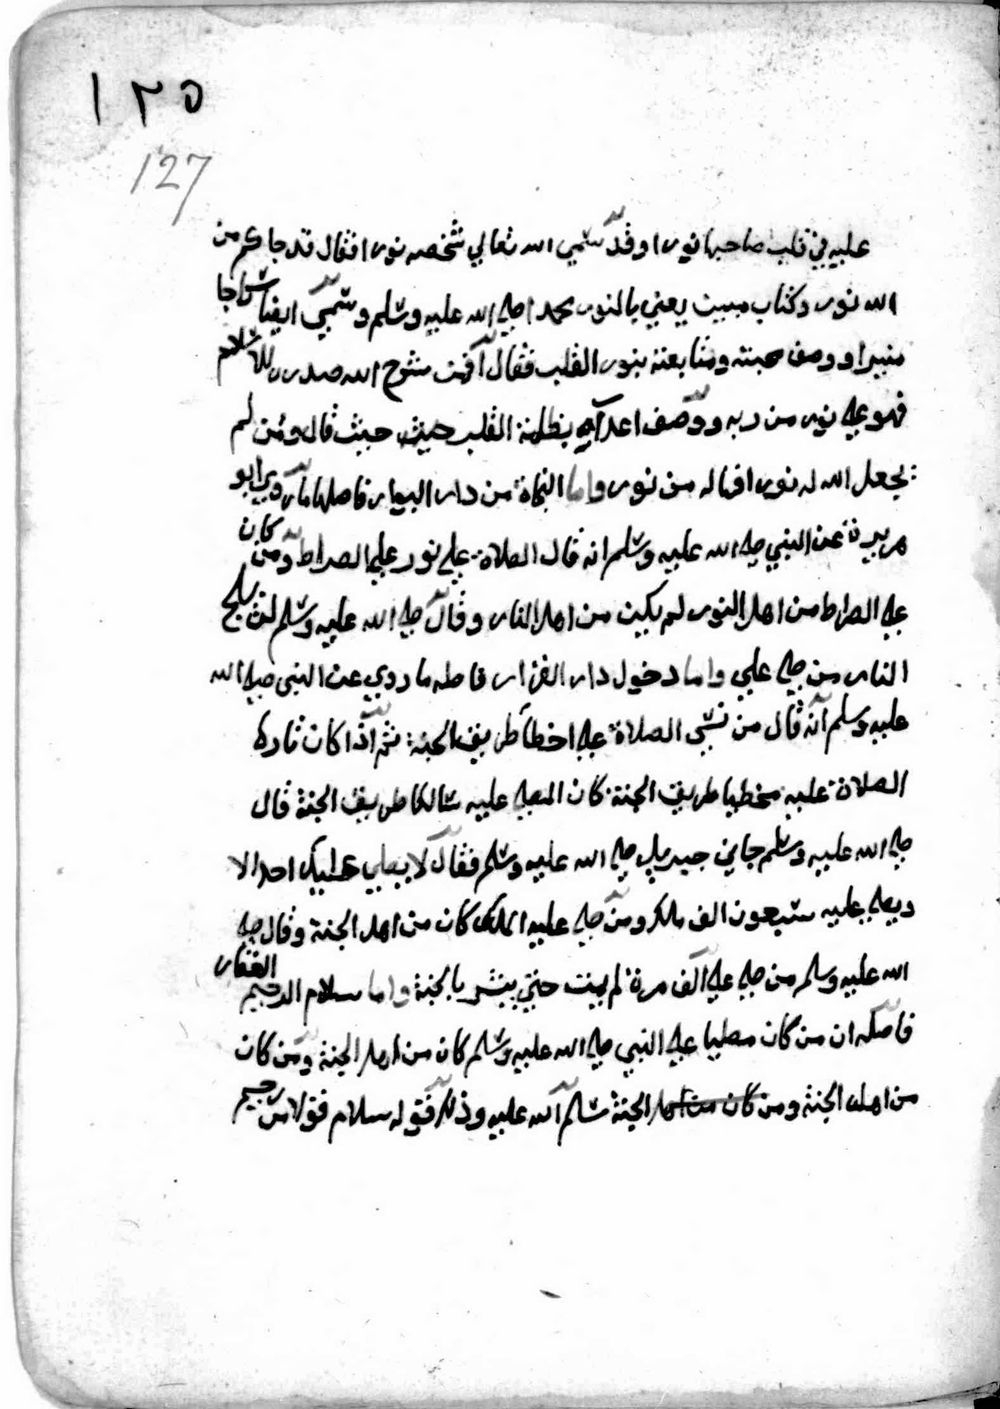 ١٢٥
127
عليه في قلب صاحبها نورا وقد سمي الله تعالي شخصه نورا فقال قد جاكم من
الله نور وكتاب مبين يعني بالنور محمدا صلي الله عليه وسلم وسمي ايضا سراجا
منيرا ووصف محبته ومتابعته بنور القلب فقال افمن شرح الله صدره للاسلام
فهو علي نور من ربه ووصف اعدآه بظلمة القلب حيث حيث قال ومن لم
يجعل الله له نورا فما له من نور واما النجاة من دار البوار فاصلها ما روي ابو
هريرة عن النبي صلي الله عليه وسلم انه قال الصلاة علي نور علي الصراط ومن كان
علي الصراط من اهل النور لم يكن من اهل النار وقال صلي الله عليه وسلم لن يلج
النار من صلي علي واما دخول دار القرار فاصله ما روي عن النبي صلي الله
عليه وسلم انه قال من نسي الصلاة علي اخطا طريق الجنة ثم اذا كان تارك
الصلاة عليه مخطيا طريق الجنة كان المصلي عليه سالكا طريق الجنة قال
صلي الله عليه وسلم جاني جبريل صلي الله عليه وسلم فقال لا يصلي عليك احد الا
ويصلي عليه سبعون الف ملك ومن صلي عليه الملك كان من اهل الجنة وقال صلي
الله عليه وسلم من صلي علي الف مرة لم يمت حتي يبشر بالجنة واما سلام الرحيم الغفار
فاصله ان من كان مصليا علي النبي صلي الله عليه وسلم كان من اهل الجنة ومن كان
من اهل الجنة ومن كان من اهل الجنة سلم الله عليه وذلك قوله سلام قولا من رحيم